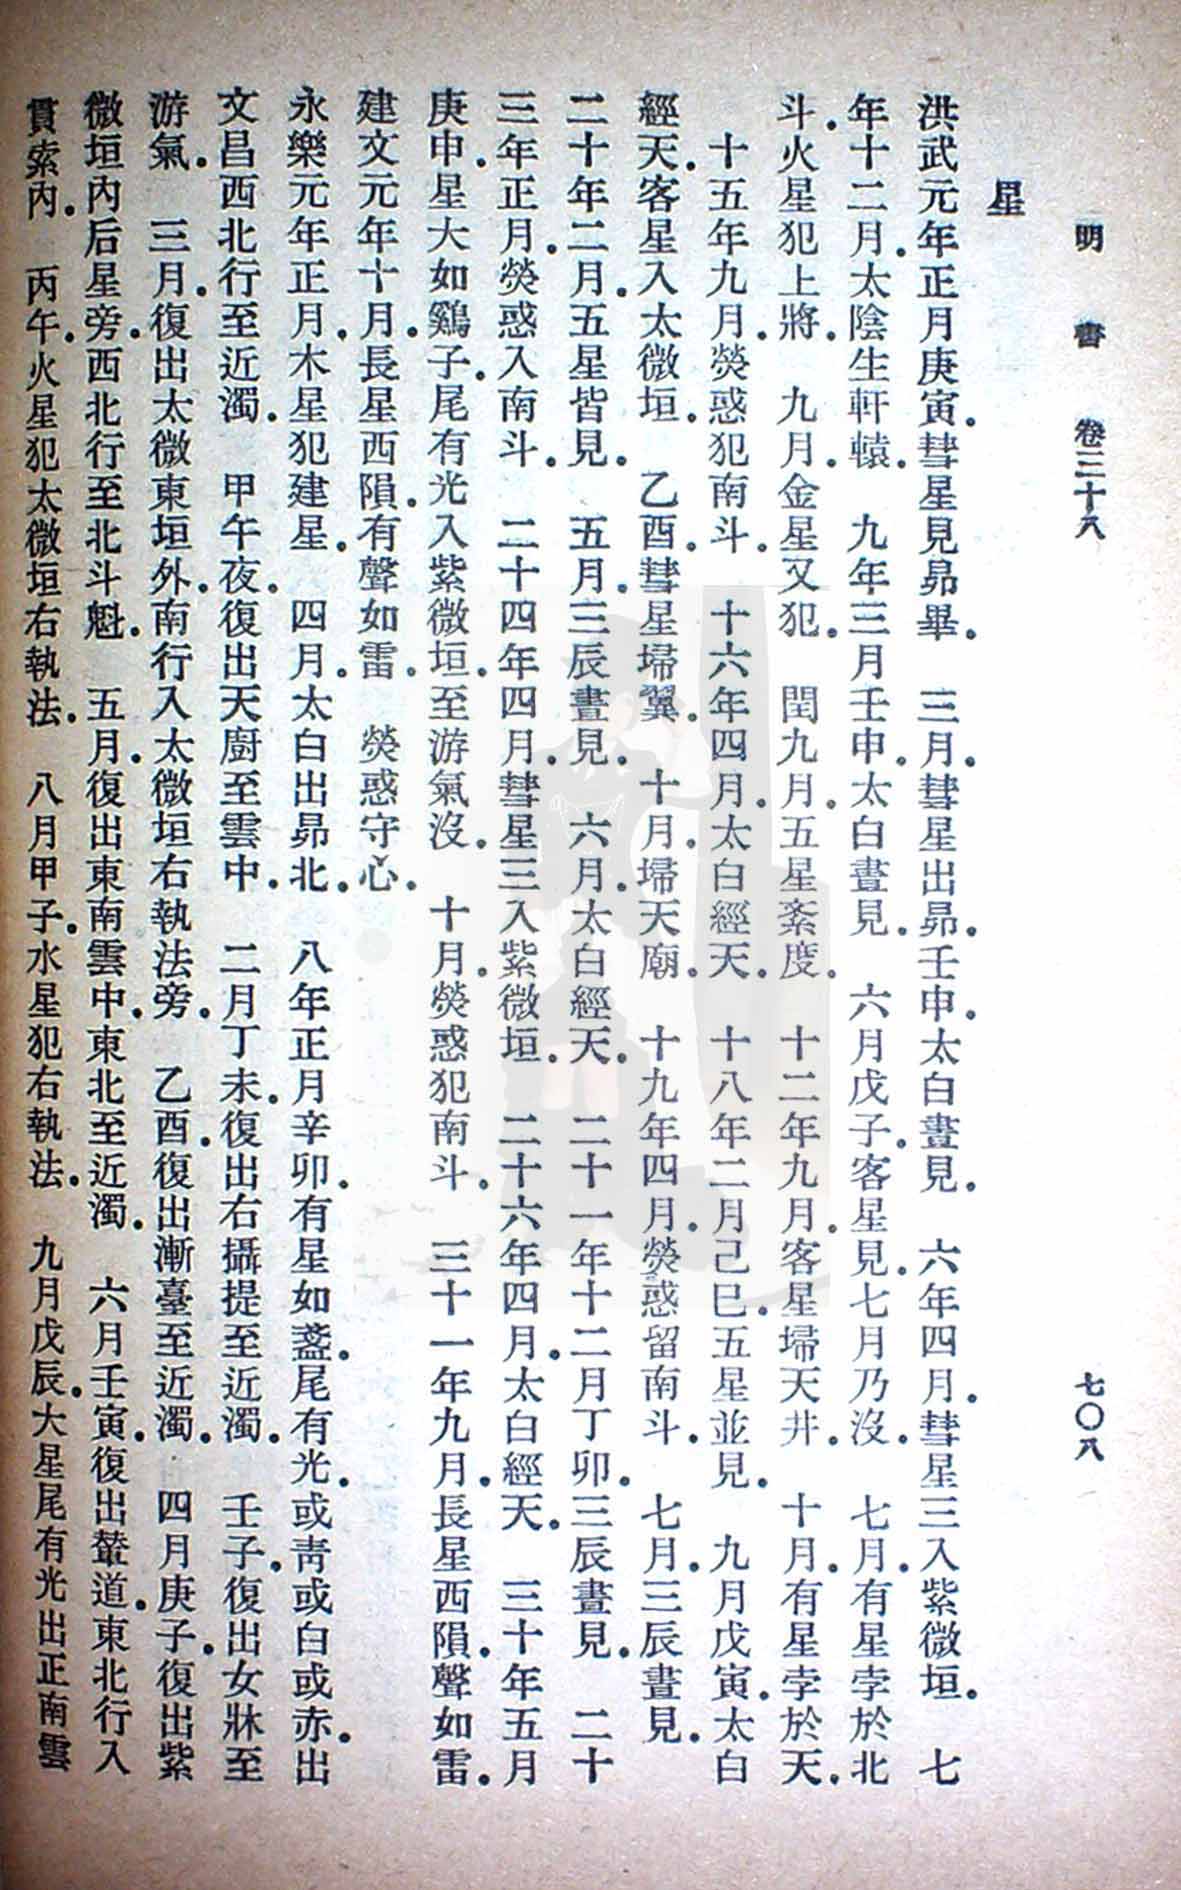 明書 卷三十八 七〇八
星
洪武元年正月庚寅．彗星見昴畢．　三月．彗星出昴．壬申．太白晝見．　六年四月．彗星三入紫微垣．　七
年十二月．太陰生軒轅．　九年三月壬申．太白晝見．　六月戊子．客星見．七月乃沒．　七月．有星孛於北
斗．火星犯上將．　九月．金星又犯．　閏九月．五星紊度．　十二年九月．客星埽天井．　十月．有星孛於天．
十五年九月．熒惑犯南斗．　十六年四月．太白經天．　十八年二月己巳．五星並見．　九月戊寅．太白
經天．客星入太微垣．　乙酉．彗星埽翼．　十月．埽天廟．　十九年四月．熒惑留南斗．　七月．三辰晝見．
二十年二月．五星皆見．　五月．三辰晝見．　六月．太白經天．　二十一年十二月丁卯．三辰晝見．　二十
三年正月．熒惑入南斗．　二十四年四月．彗星三入紫微垣．　二十六年四月．太白經天．　三十年五月
庚申．星大如鷄子．尾有光入紫微垣．至游氣沒．　十月．熒惑犯南斗．　三十一年九月．長星西隕．聲如雷．
建文元年十月．長星西隕．有聲如雷．　熒惑守心．
永樂元年正月．木星犯建星．　四月．太白出昴北．　八年正月辛卯．有星如盞．尾有光．或靑或白或赤．出
文昌西北行至近濁．　甲午夜．復出天廚至雲中．　二月丁未．復出右攝提至近濁．　壬子．復出女牀至
游氣．　三月．復出太微東垣外．南行入太微垣右執法旁．　乙酉．復出漸臺至近濁．　四月庚子．復出紫
微垣內后星旁．西北行至北斗魁．　五月．復出東南雲中．東北至近濁．　六月壬寅．復出輦道．東北行入
貫索內．　丙午．火星犯太微垣右執法．　八月甲子．水星犯右執法．　九月戊辰．大星尾有光出正南雲